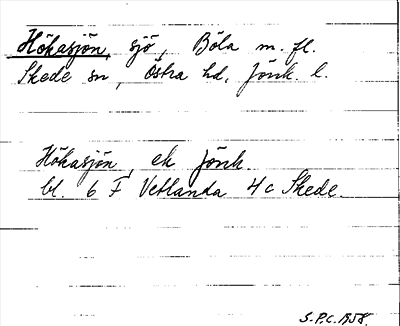 Hökasjön, sjö, Böla m. fl.
Skede sn, Östra hd, Jönk. l.
Hökasjön, ek Jönk.
bl. 6 F Vetlanda 4 c Skede.
S.P.C. 1958.